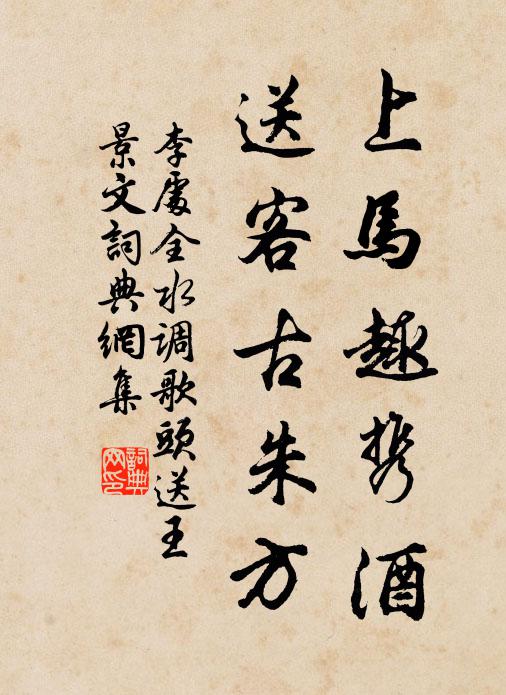 上馬趣携酒
送客古朱方
李處全水调歌頭送王
景文詞典網集
詞典網印